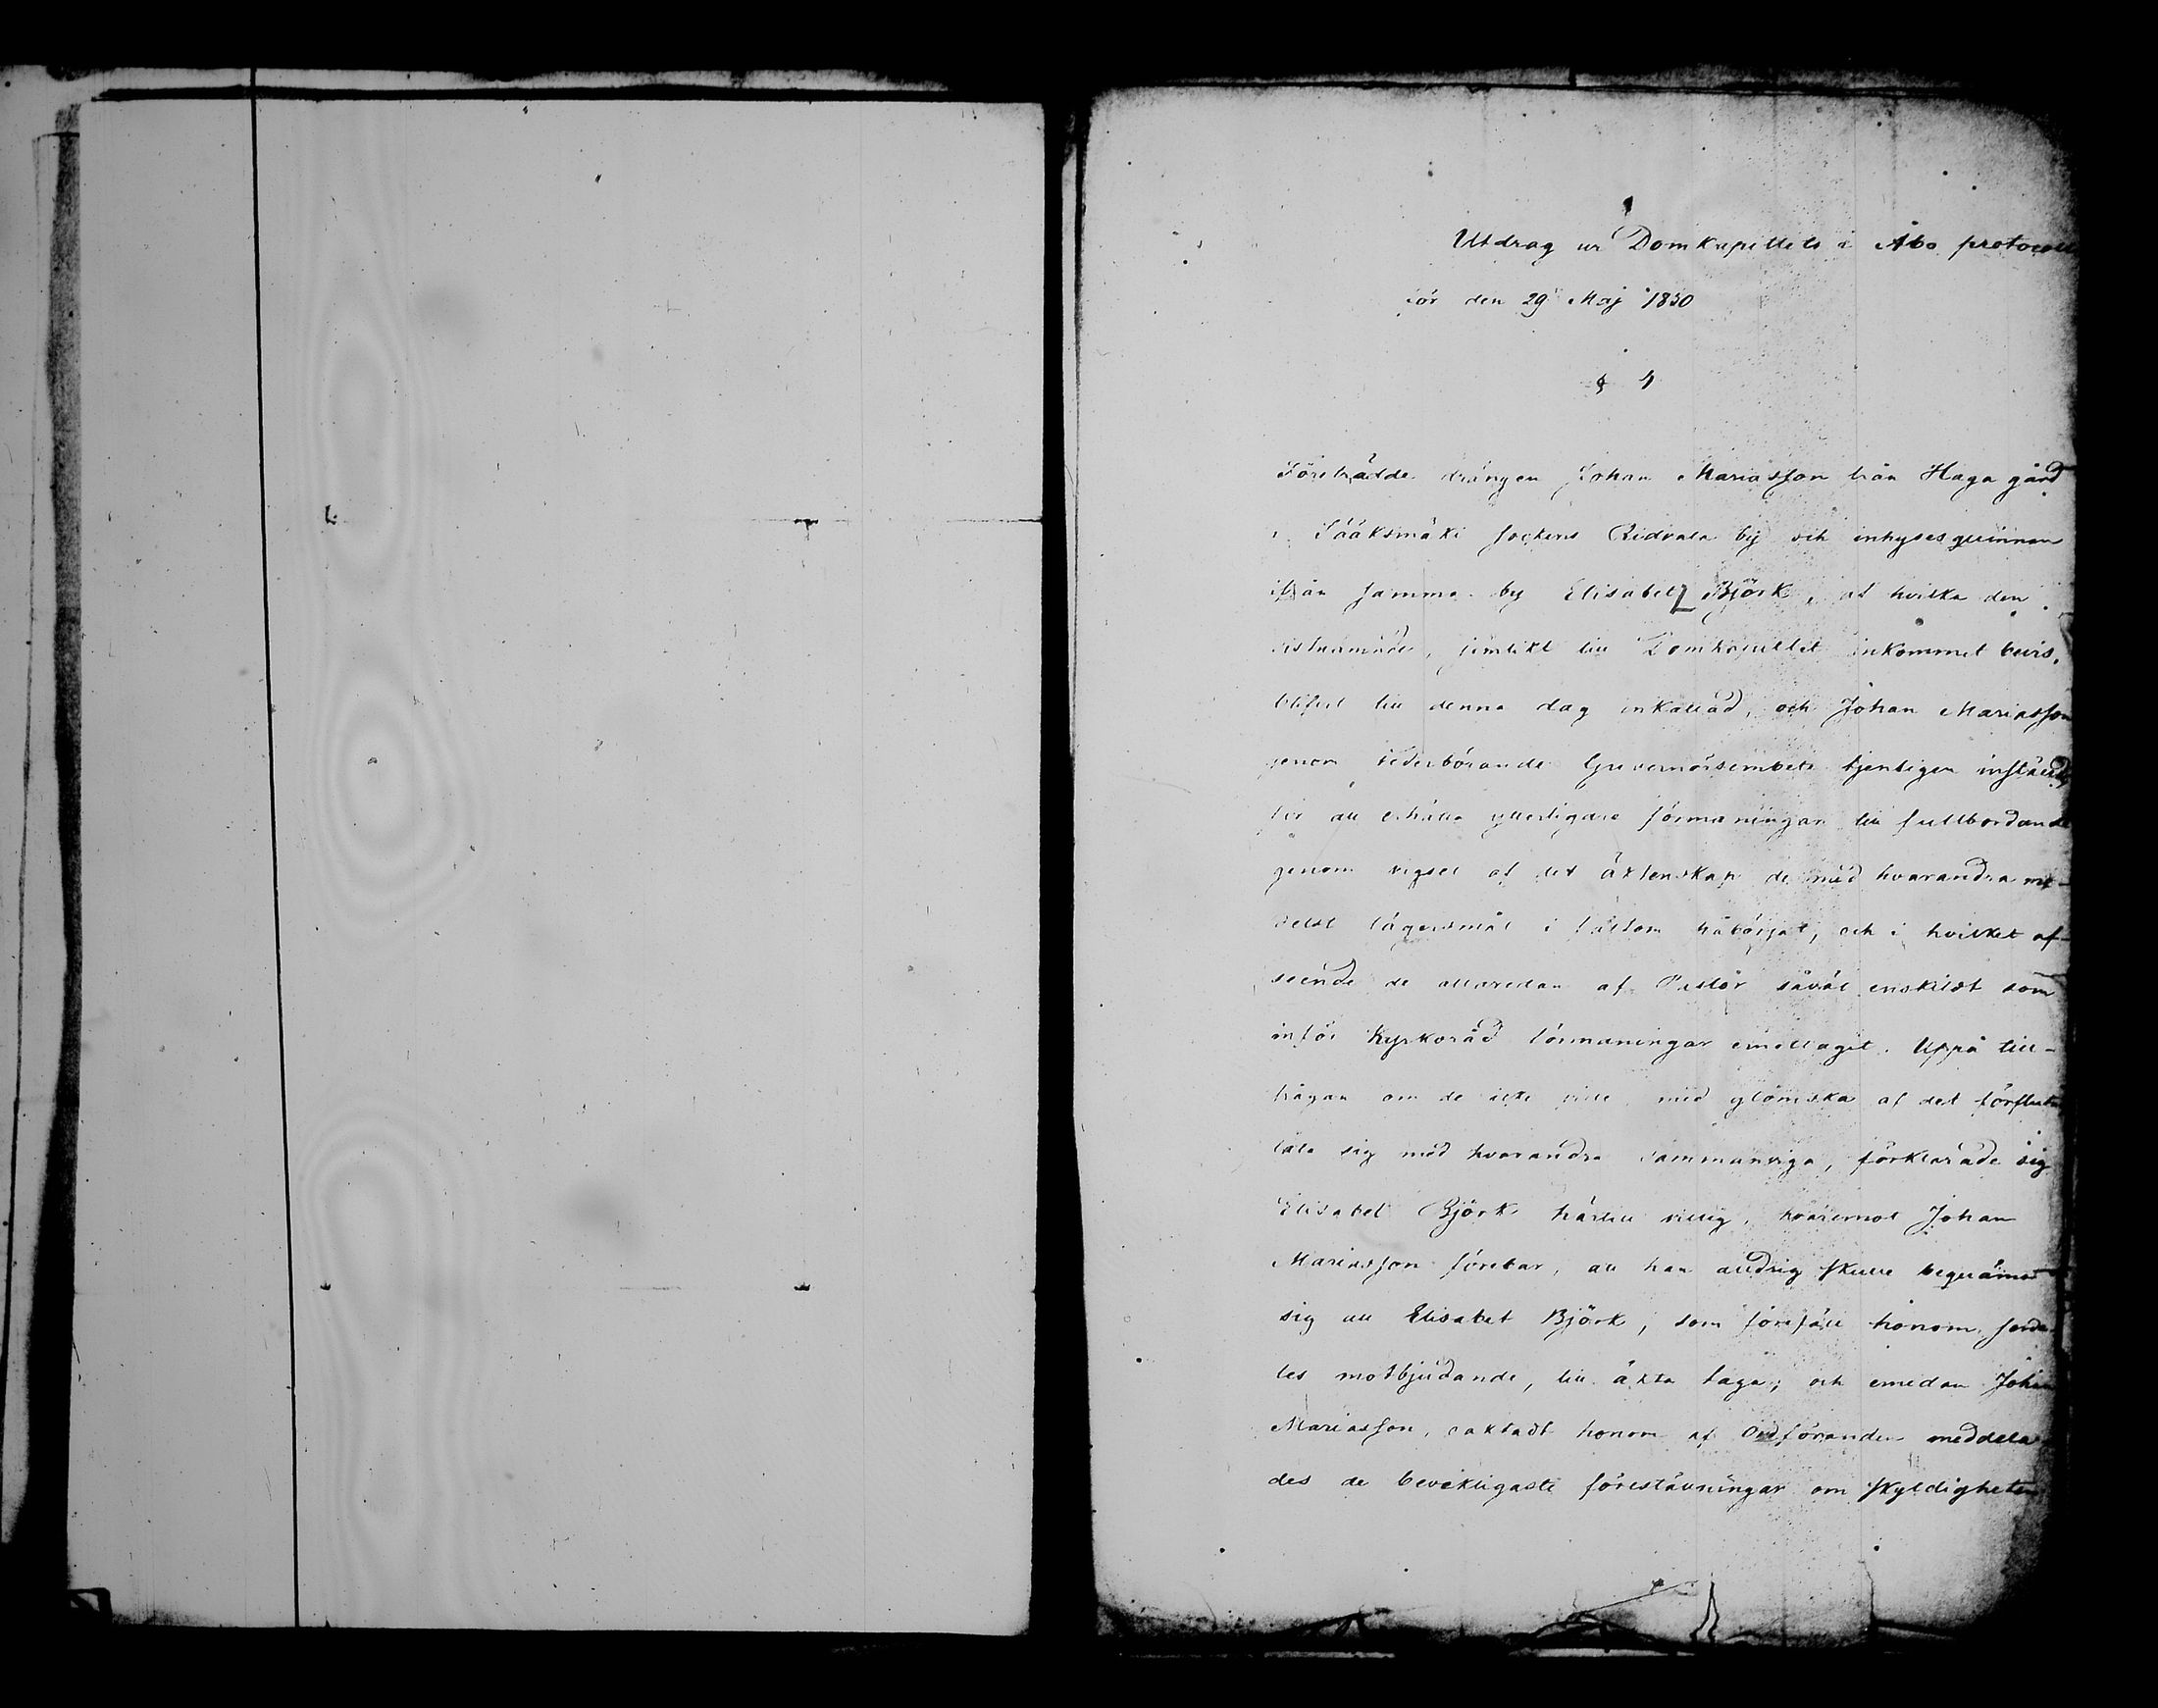 Utdrag ur Domkapitlets i Åbo protocoll
för den 29 Maj 1850
§ 4
Företrädde drängen Johan Mariasson från Haga gård
i Sääksmäki sockens Ridvala by och inhysesqvinnan
ifrån samma by Elisabet Björk, af hvilka den
sistnämnde, jemlikt till Domkapitlet inkommet bevis,
blifvit till denna dag inkallad, och Johan Mariasson
genom vederbörande Guvernörsembete tjenligen inställd,
för att erhålla ytterligare förmaningar till fullbordande
genom vigsel af det äktenskap de med hvarandra me-
delst lägersmål i påbörjat, och i hvilket af-
seende de allaredan af Pastor såväl enskildt som
inför Kyrkoråd förmaningar emottagit. Uppå till-
frågan om de icke ville, med glömska af det förflutna
låta sig med hvarandra sammanviga, förklarade sig
Elisabet Björk härtill villig, hvaremot Johan
Mariasson förebar, att han aldrig skulle beqväma
sig att Elisabet Björk, som föreföll honom, sorde-
les motbjudande, till äkta taga; och emedan Johan
Mariasson, oaktadt honom af Ordföranden meddela-
des de bevekligaste föreställningar om skyldigheten